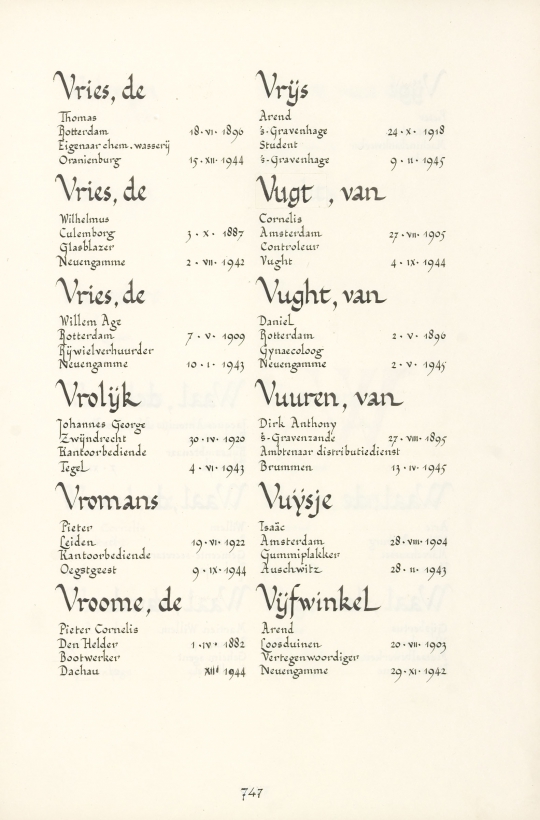 Vries, de
Thomas
Rotterdam 18·VI·1896
Eigenaar chem. wasserij
Oranienburg 15·XII·1944
Vries, de
Wilhelmus
Culemborg 3·X·1887
Glasblazer
Neuengamme 2·VII·1942
Vries, de
Willem Age
Rotterdam 7·V·1909
Rijwielverhuurder
Neuengamme 10·I·1943
Vrolijk
Johannes George
Zwijndrecht 30·IV·1920
Kantoorbediende
Tegel 4·VI·1943
Vromans
Pieter
Leiden 19·VI·1922
Kantoorbediende
Oegstgeest 9·IX·1944
Vroome, de
Pieter Cornelis
Den Helder 1·IV·1882
Bootwerker
Dachau XII 1944
Vrijs
Arend
's-Gravenhage 24·X·1918
Student
's-Gravenhage 9·II·1945
Vugt, van
Cornelis
Amsterdam 27·VII·1905
Controleur
Vught 4·IX·1944
Vught, van
Daniel
Rotterdam 2·V·1896
Gynaecoloog
Neuengamme 2·V·1945
Vuuren, van
Dirk Anthony
's-Gravenzande 27·VIII·1895
Ambtenaar distributiedienst
Brummen 13·IV·1945
Vuÿsje
Isaäc
Amsterdam 28·VIII·1904
Gummiplakker
Auschwitz 28·II·1943
Vijfwinkel
Arend
Loosduinen 20·VII·1903
Vertegenwoordiger
Neuengamme 29·XI·1942
747